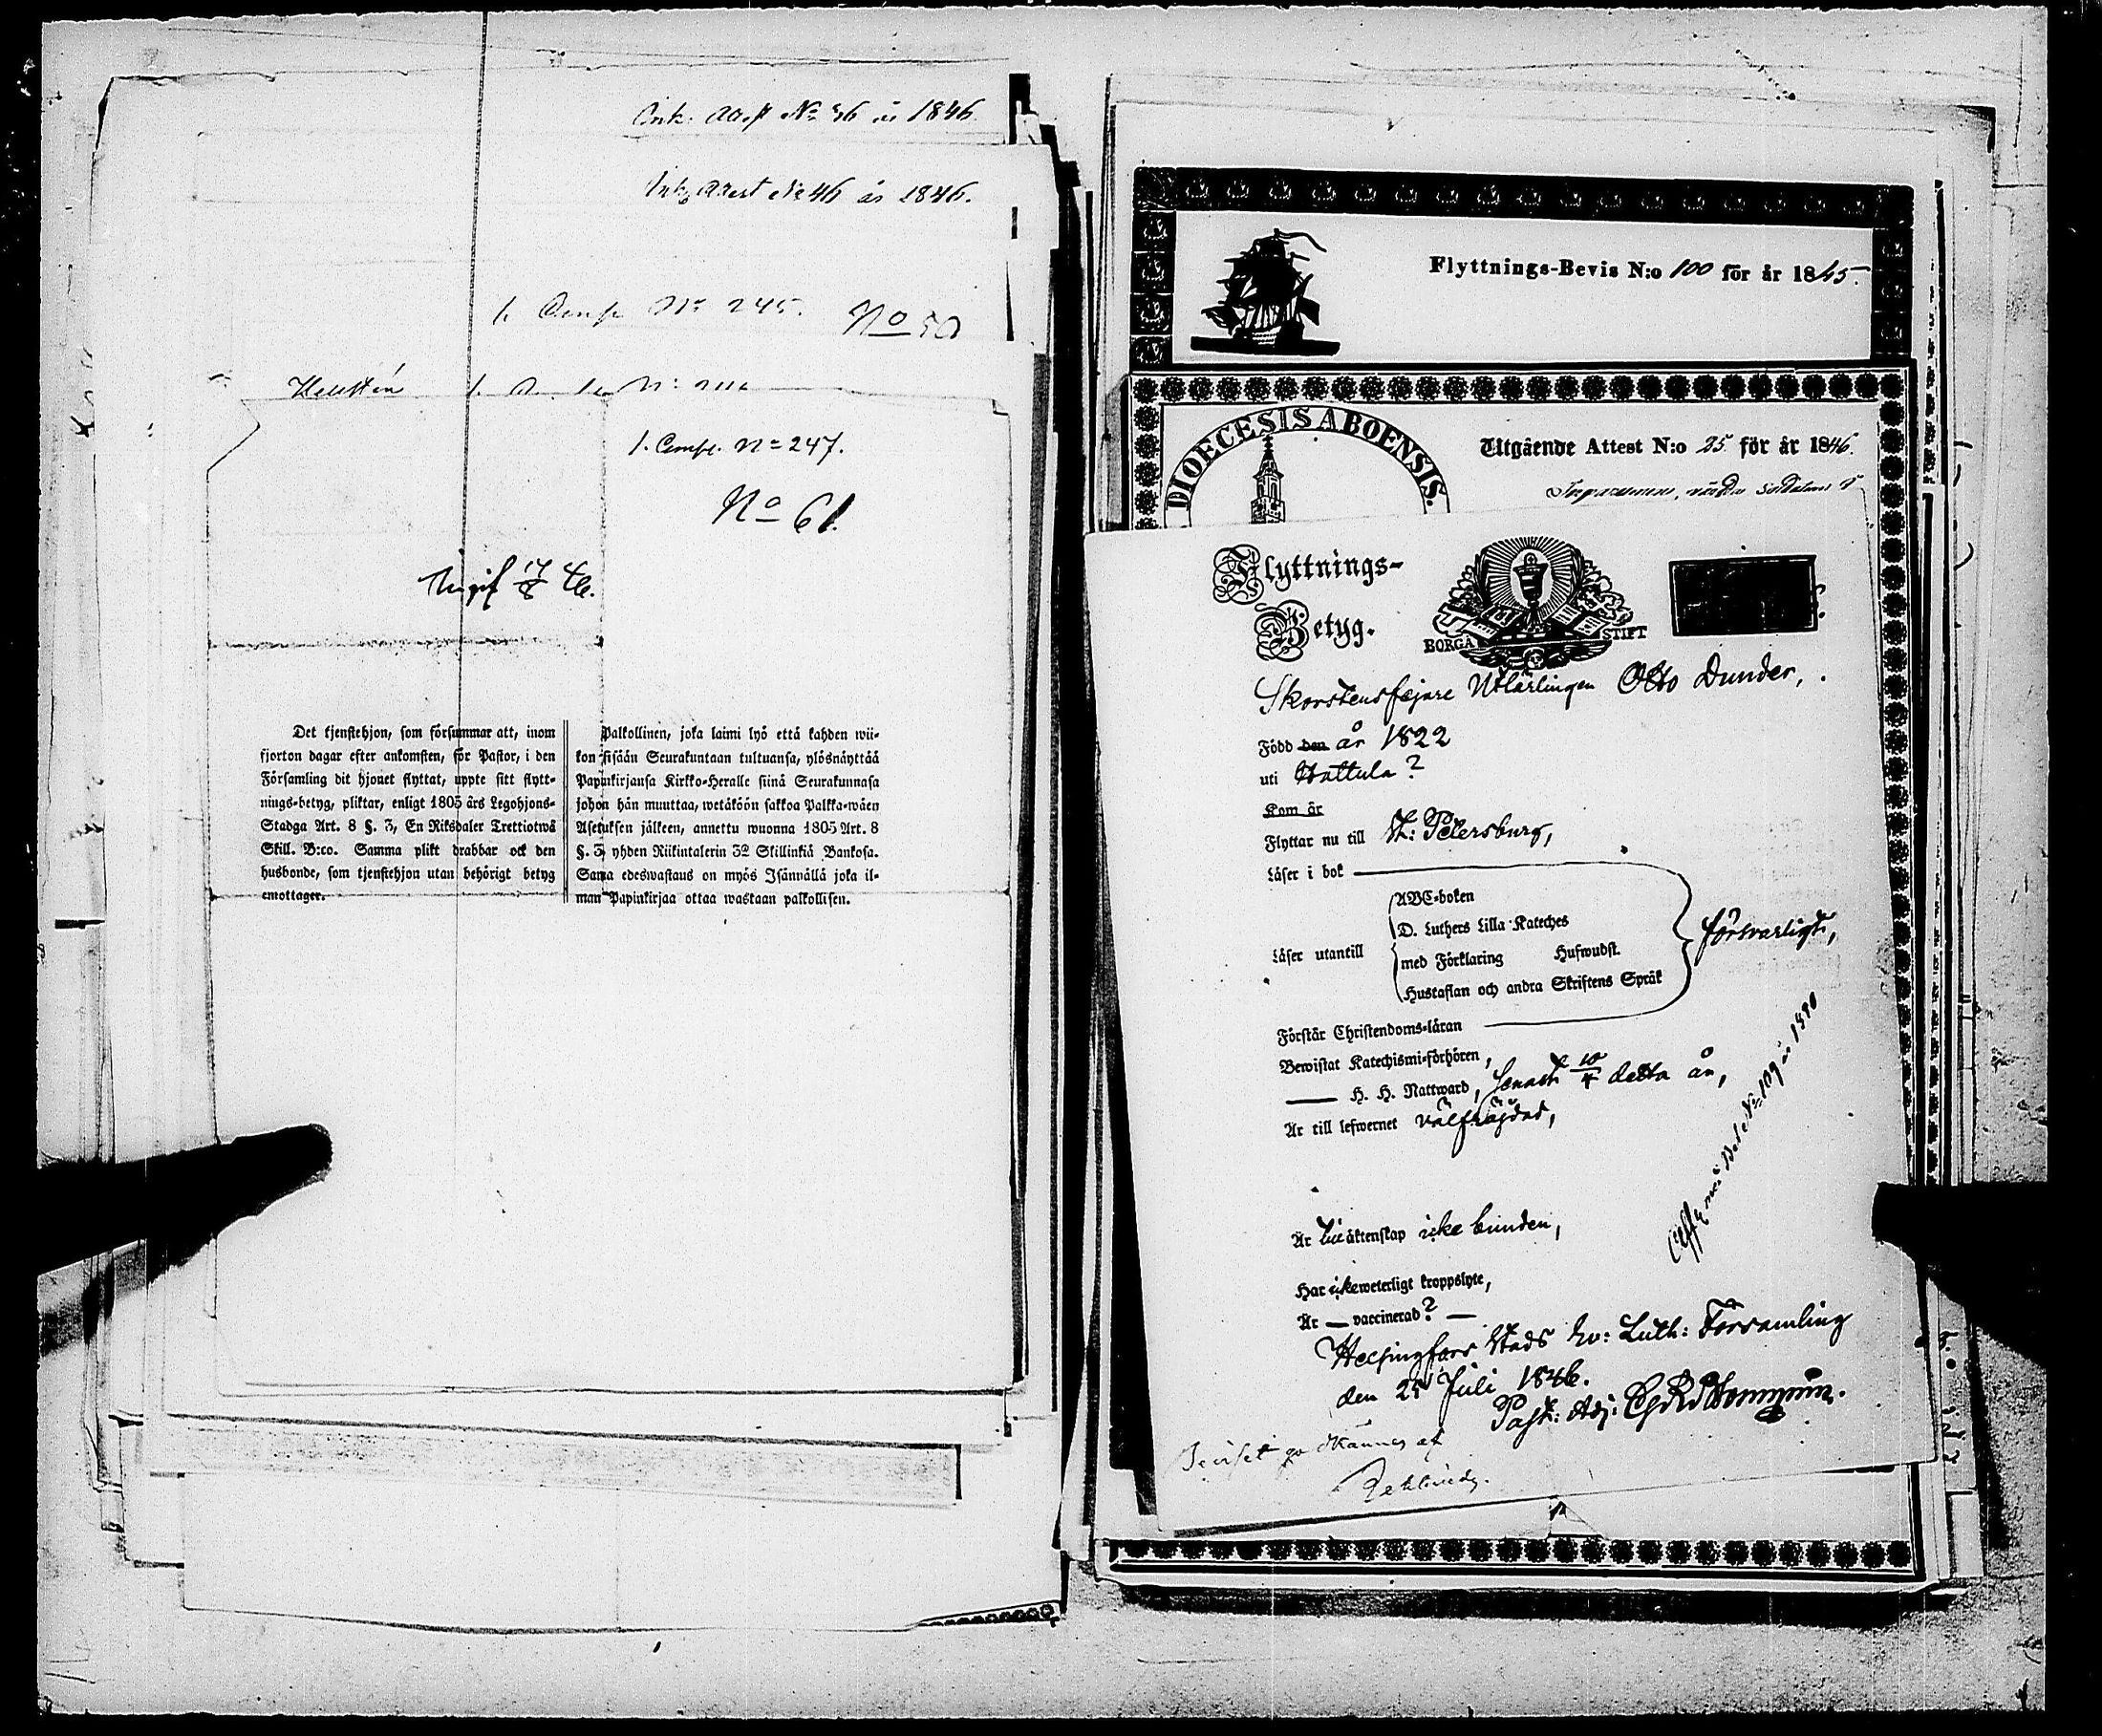 Ink: Attest No 36 år 1846.
Ink. Attest No 46 år 1846.
1. Comp. No 245. No 50
1. Comp. No 247.
No 61.
Det tjenstehjon, som försummar att, inom
fjorton dagar efter ankomsten, för Pastor, i den
Församling dit hjonet flyttat, uppte sitt flytt-
nings-betyg, pliktar, enligt 1805 års Legohjons-
Stadga Art. 8 §. 3, En Riksdaler Trettiotwå
Skill. B:co. Samma plikt drabbar ock den
husbonde, som tjenstehjon utan behörigt betyg
emottager.
Palkollinen, joka laimi lyö että kahden wii-
kon sisään Seurakuntaan tultuansa, ylösnäyttää
Papinkirjansa Kirkko-Heralle siinä Seurakunnasa
johon hän muuttaa, wetäköön sakkoa Palkka-wäen
Asetuksen jälkeen, annettu wuonna 1805 Art. 8
§. 3, yhden Riikintalerin 32 Skillinkiä Bankosa.
Sama edeswastaus on myös Isännällä joka il-
man Papinkirjaa ottaa wastaan palkollisen.
Flyttnings-Bevis N:o 100 för år 1845.
DIOECESIS ABOENSIS.
Utgående Attest N:o 25 för år 1846.
Flyttnings-
Betyg.
BORGÅ STIFT
Skorstensfejare Utlärlingen Otto Dunder,
Född den år 1822
uti Hattula?
Kom år
Flyttar nu till St: Petersburg,
Läser i bok
ABC-boken
D. Luthers Lilla Kateches
Läser utantill
med Förklaring Hufwudst.
Hustaflan och andra Skriftens Språk
försvarligt,
Förstår Christendoms-läran
Bewistat Katechismi-förhören,
H. H. Nattward, senast 10/4 detta år,
Är till lefwernet välfräjdad,
Är till äktenskap icke bunden,
Har icke weterligt kroppslyte,
Är — vaccinerad? —
Helsingfors Stads Ev: Luth: Församling
den 25 Juli 1846.
Past: Adj:
Beviset godkännes af